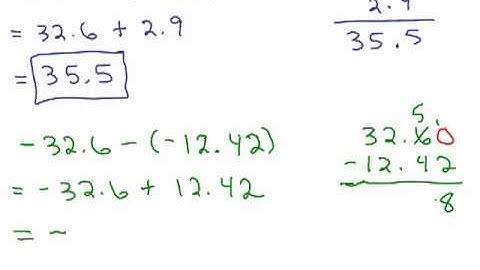 = 32.6 + 2.9
= 35.5
2.9
35.5
-32.6 - (-12.42)
= -32.6 + 12.42
= -
5
32.60
-12.42
.8